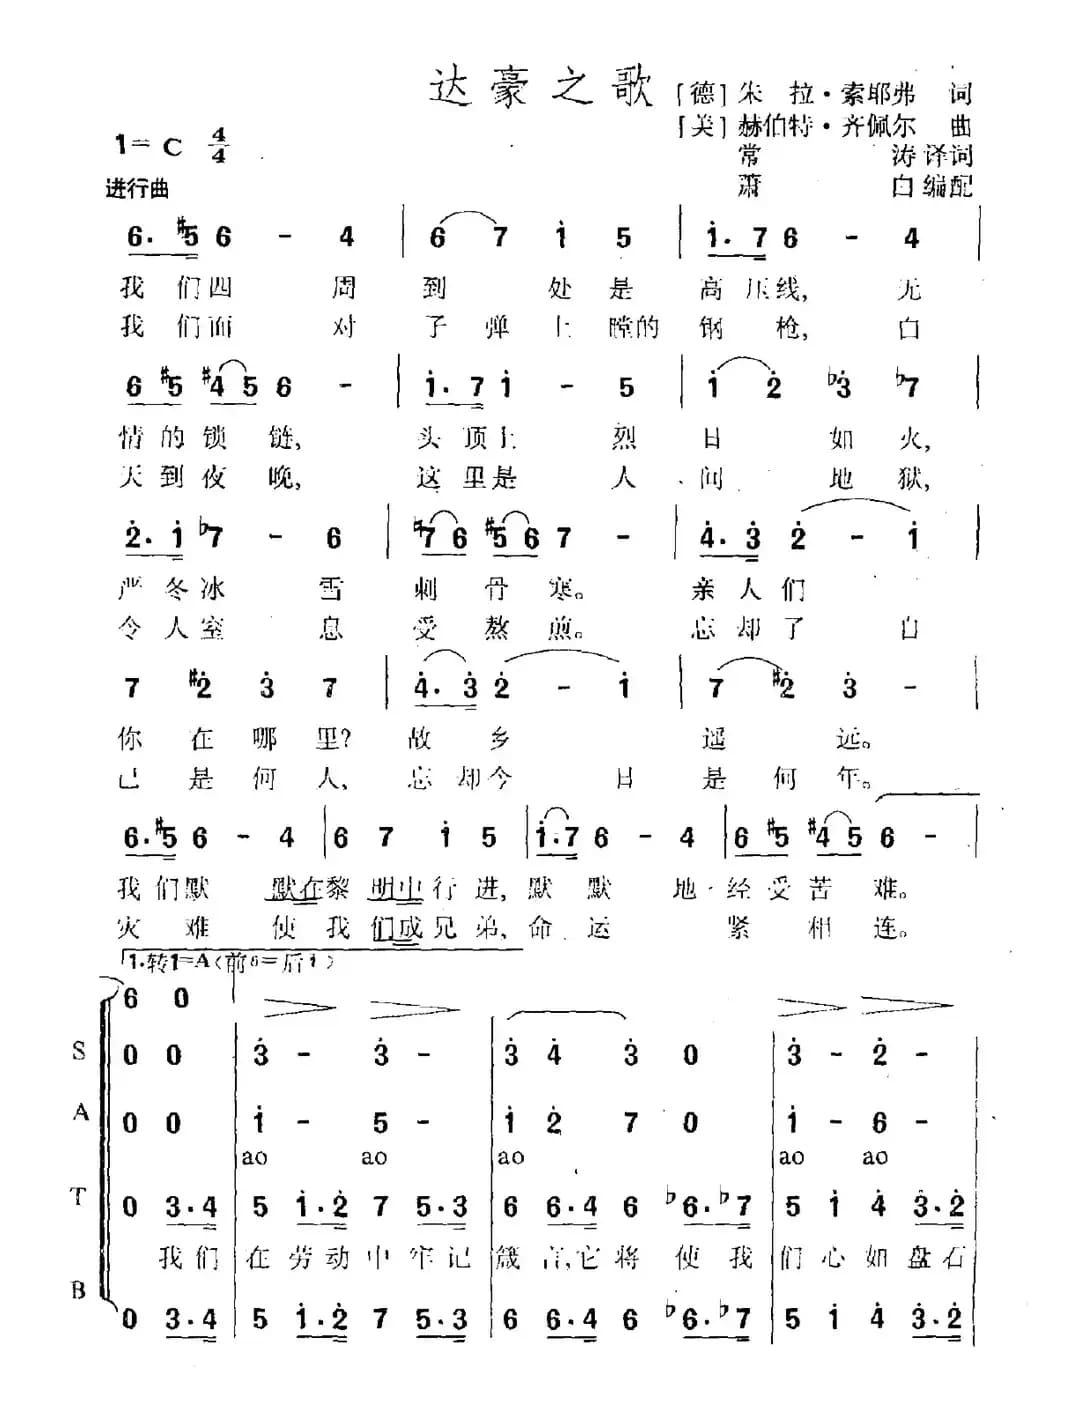 达豪之歌
[德]朱 拉·索耶弗 词
[美]赫伯特·齐佩尔 曲
常 涛译词
萧 白编配
1=C 4/4
进行曲
6. #5 6 - 4 | 6 7 i 5 | i. 7 6 - 4
我们四 周 到 处是 高压线, 无
我们面 对 子弹上膛的 钢 枪, 白
6 #5 #4 5 6 - | i. 7 i - 5 | i 2 b3 b7
情的锁 链, 头顶上 烈 日 如火,
天到夜 晚, 这里是 人 间 地狱,
2. i b7 - 6 | ♮7 6 #5 6 7 - | 4. 3 2 - i
严冬冰 雪 刺 骨 寒。 亲人们
令人窒 息 受 熬 煎。 忘却了 自
7 #2 3 7 | 4. 3 2 - i | 7 #2 3 -
你在哪里? 故 乡 遥 远。
己是何人, 忘却今 日 是何年。
6. #5 6 - 4 | 6 7 i 5 | i. 7 6 - 4 | 6 #5 #4 5 6 -
我们默 默在黎明中行进, 默默 地 经受苦 难。
灾难 使我们成兄弟, 命运 紧 相 连。
1. 转1=A(前6=后i)
6 0
S 0 0 | 3 - 3 - | 3 4 3 0 | 3 - 2 -
A 0 0 | i - 5 - | i 2 7 0 | i - 6 -
ao ao ao ao ao
T 0 3. 4 | 5 i. 2 7 5. 3 | 6 6. 4 6 b6. b7 | 5 i 4 3. 2
我们 在劳动中牢记 箴言,它将 使我 们心如盘石
B 0 3. 4 | 5 i. 2 7 5. 3 | 6 6. 4 6 b6. b7 | 5 i 4 3. 2